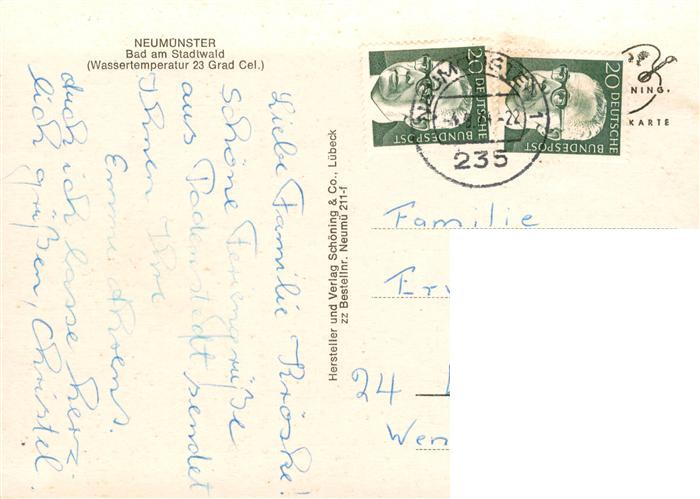 NEUMÜNSTER
Bad am Stadtwald
(Wassertemperatur 23 Grad Cel.)
Liebe Familie Kröske!
Schöne Feriengrüße
aus Padenstedt sendet
Ihnen Ihre
Emma Ahrens.
auch ich lasse herz-
lich grüßen, Christel.
Hersteller und Verlag Schöning & Co., Lübeck
zz Bestellnr. Neumü 211-f
20 DEUTSCHE
BUNDESPOST
20 DEUTSCHE
BUNDESPOST
235
NING,
KARTE
Familie
Er
24
Wen